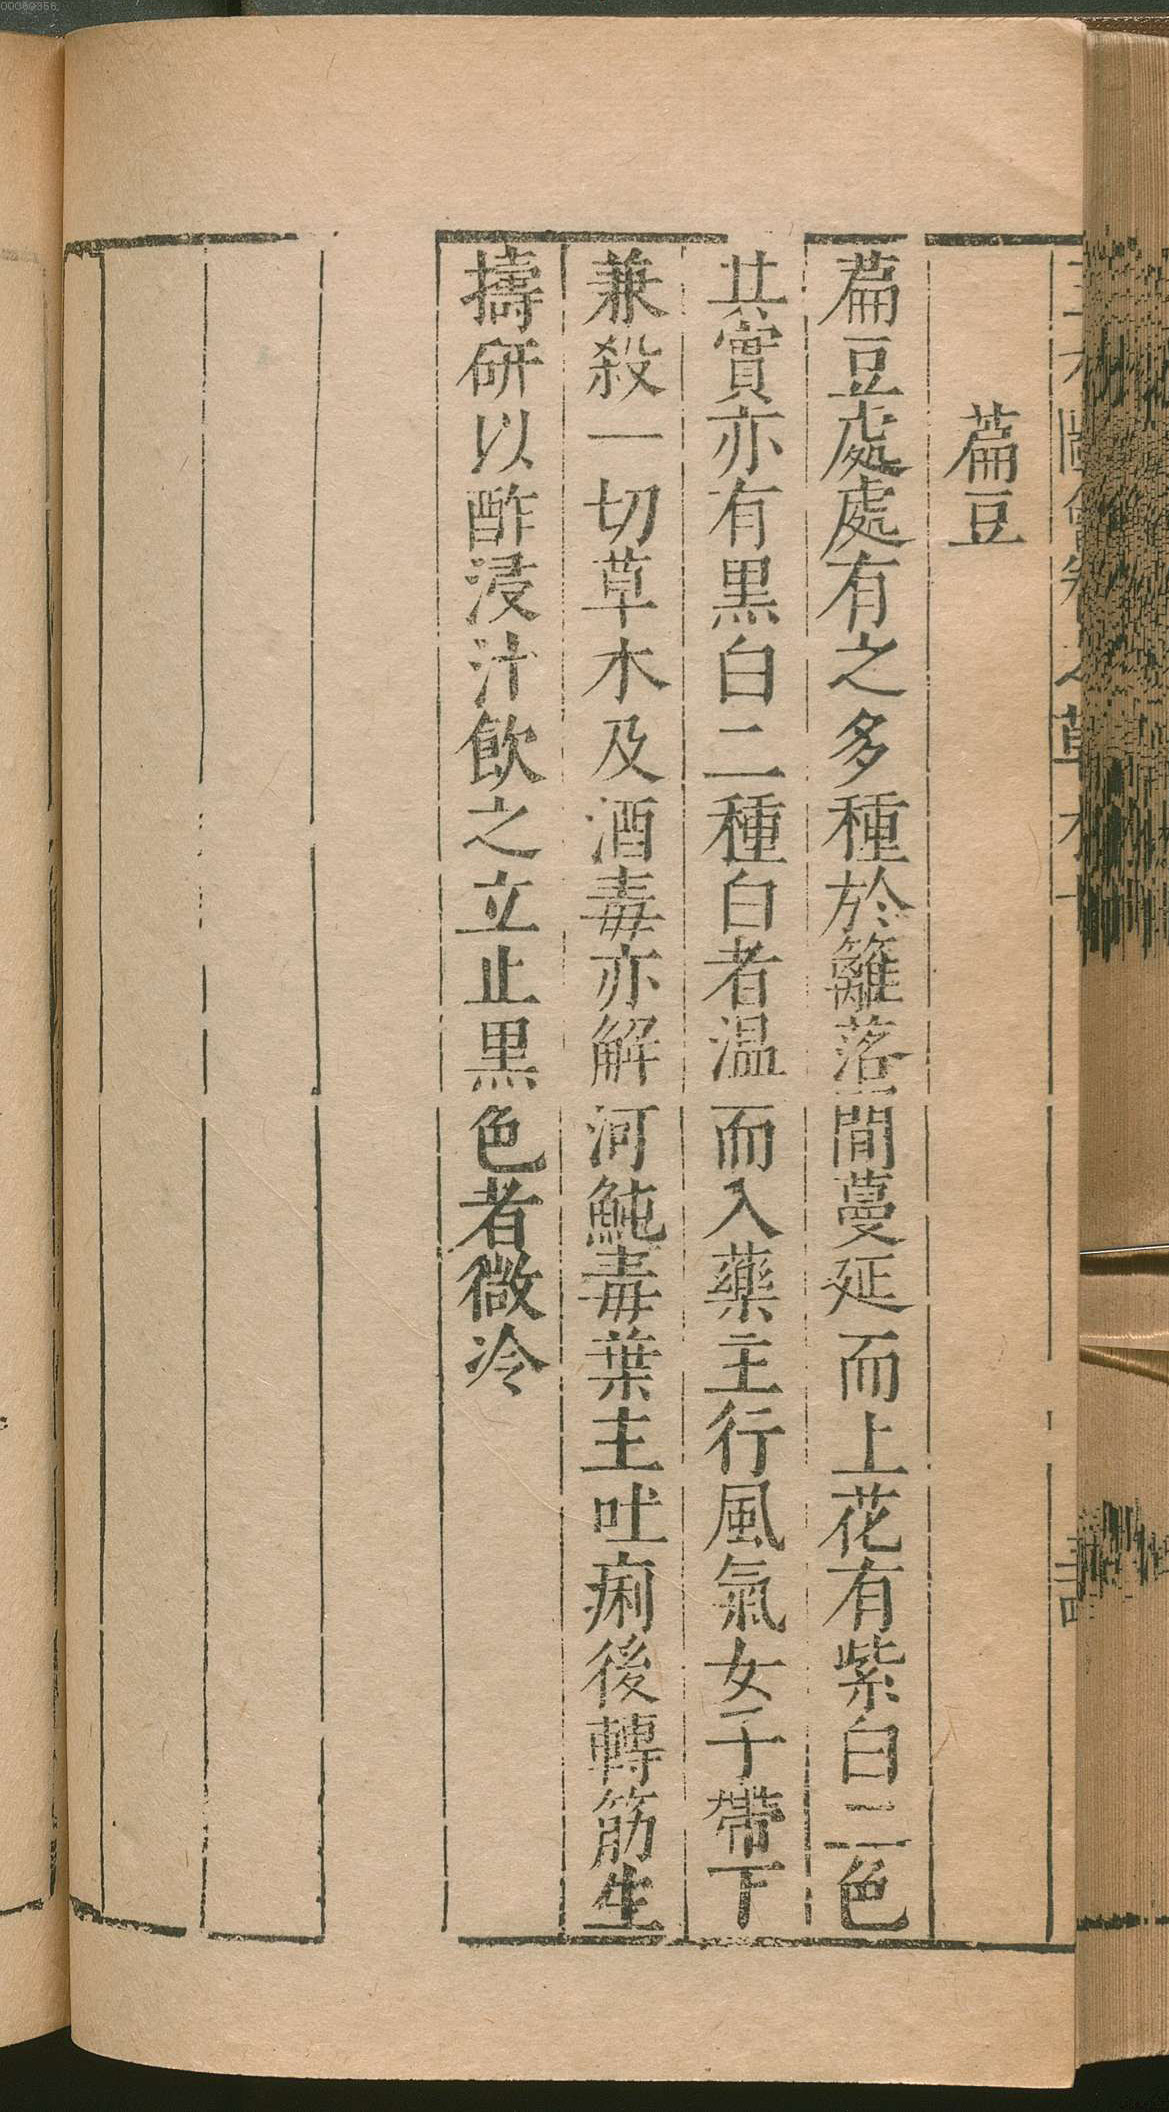 00069356
萹豆
萹豆處處有之多種於籬落間蔓延而上花有紫白二色
其實亦有黒白二種白者温而入藥主行風氣女子帶下
兼殺一切草木及酒毒亦解河魨毒葉主吐痢後轉筋生
擣研以酢浸汁飲之立止黒色者微冷